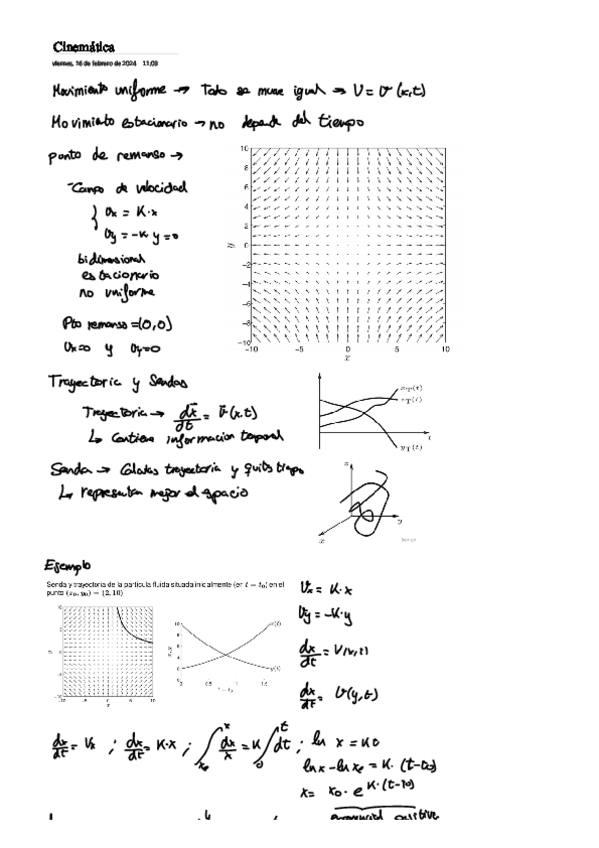 Cinemática
viernes, 16 de febrero de 2024 11:03
Movimiento uniforme → Todo se mueve igual → V = v(x,t)
Movimiento estacionario → no depende del tiempo
punto de remanso →
-Campo de velocidad
vx = K·x
vy = -K y = 0
bidimensional
estacionario
no uniforme
Pto remanso = (0,0)
vx=0 y vy=0
10
8
6
4
2
y 0
-2
-4
-6
-8
-10
-10 -5 0 5 10
x
Trayectoria y Sendas
Trayectoria → dx/dt = v(x,t)
↳ Contiene información temporal
Senda → Calculas trayectoria y quitas tiempo
↳ representan mejor el espacio
xT(t)
zT(t)
yT(t)
t
z
y
x
Ejemplo
Senda y trayectoria de la partícula fluida situada inicialmente (en t = t₀) en el
punto (x₀, y₀) = (2, 10)
x(t)
y(t)
Vx = K·x
Vy = -K·y
dx/dt = V(x,t)
dx/dt = V(y,t)
dx/dt = Vx ; dx/dt = K·x ; ∫ dx/x = K ∫ dt ; ln x = K t
ln x - ln x₀ = K·(t-t₀)
x = x₀ · e^K·(t-t₀)